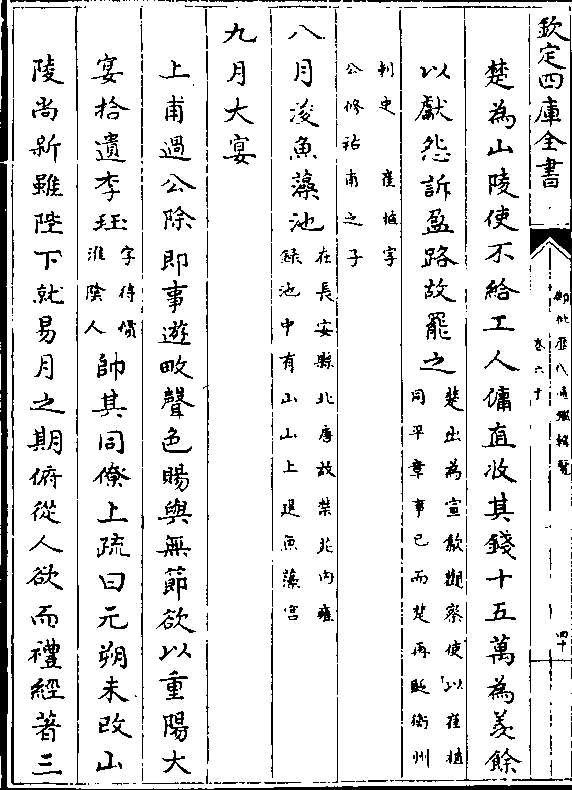 欽定四庫全書
御批歷代通鑑輯覽
卷六十
四十
楚為山陵使不給工人傭直收其錢十五萬為羡餘
以獻怨訴盈路故罷之
楚出為宣歙觀察使以崔植
同平章事已而楚再貶衡州
刺史 崔植字
公修祐甫之子
八月浚魚藻池
在長安縣北唐故禁苑内
緑池中有山山上建魚藻宫
九月大宴
上甫過公除即事遊畋聲色賜與無節欲以重陽大
宴拾遺李珏
字待價
淮陰人
帥其同僚上疏曰元朔未改山
陵尚新雖陛下就易月之期俯從人欲而禮經著三